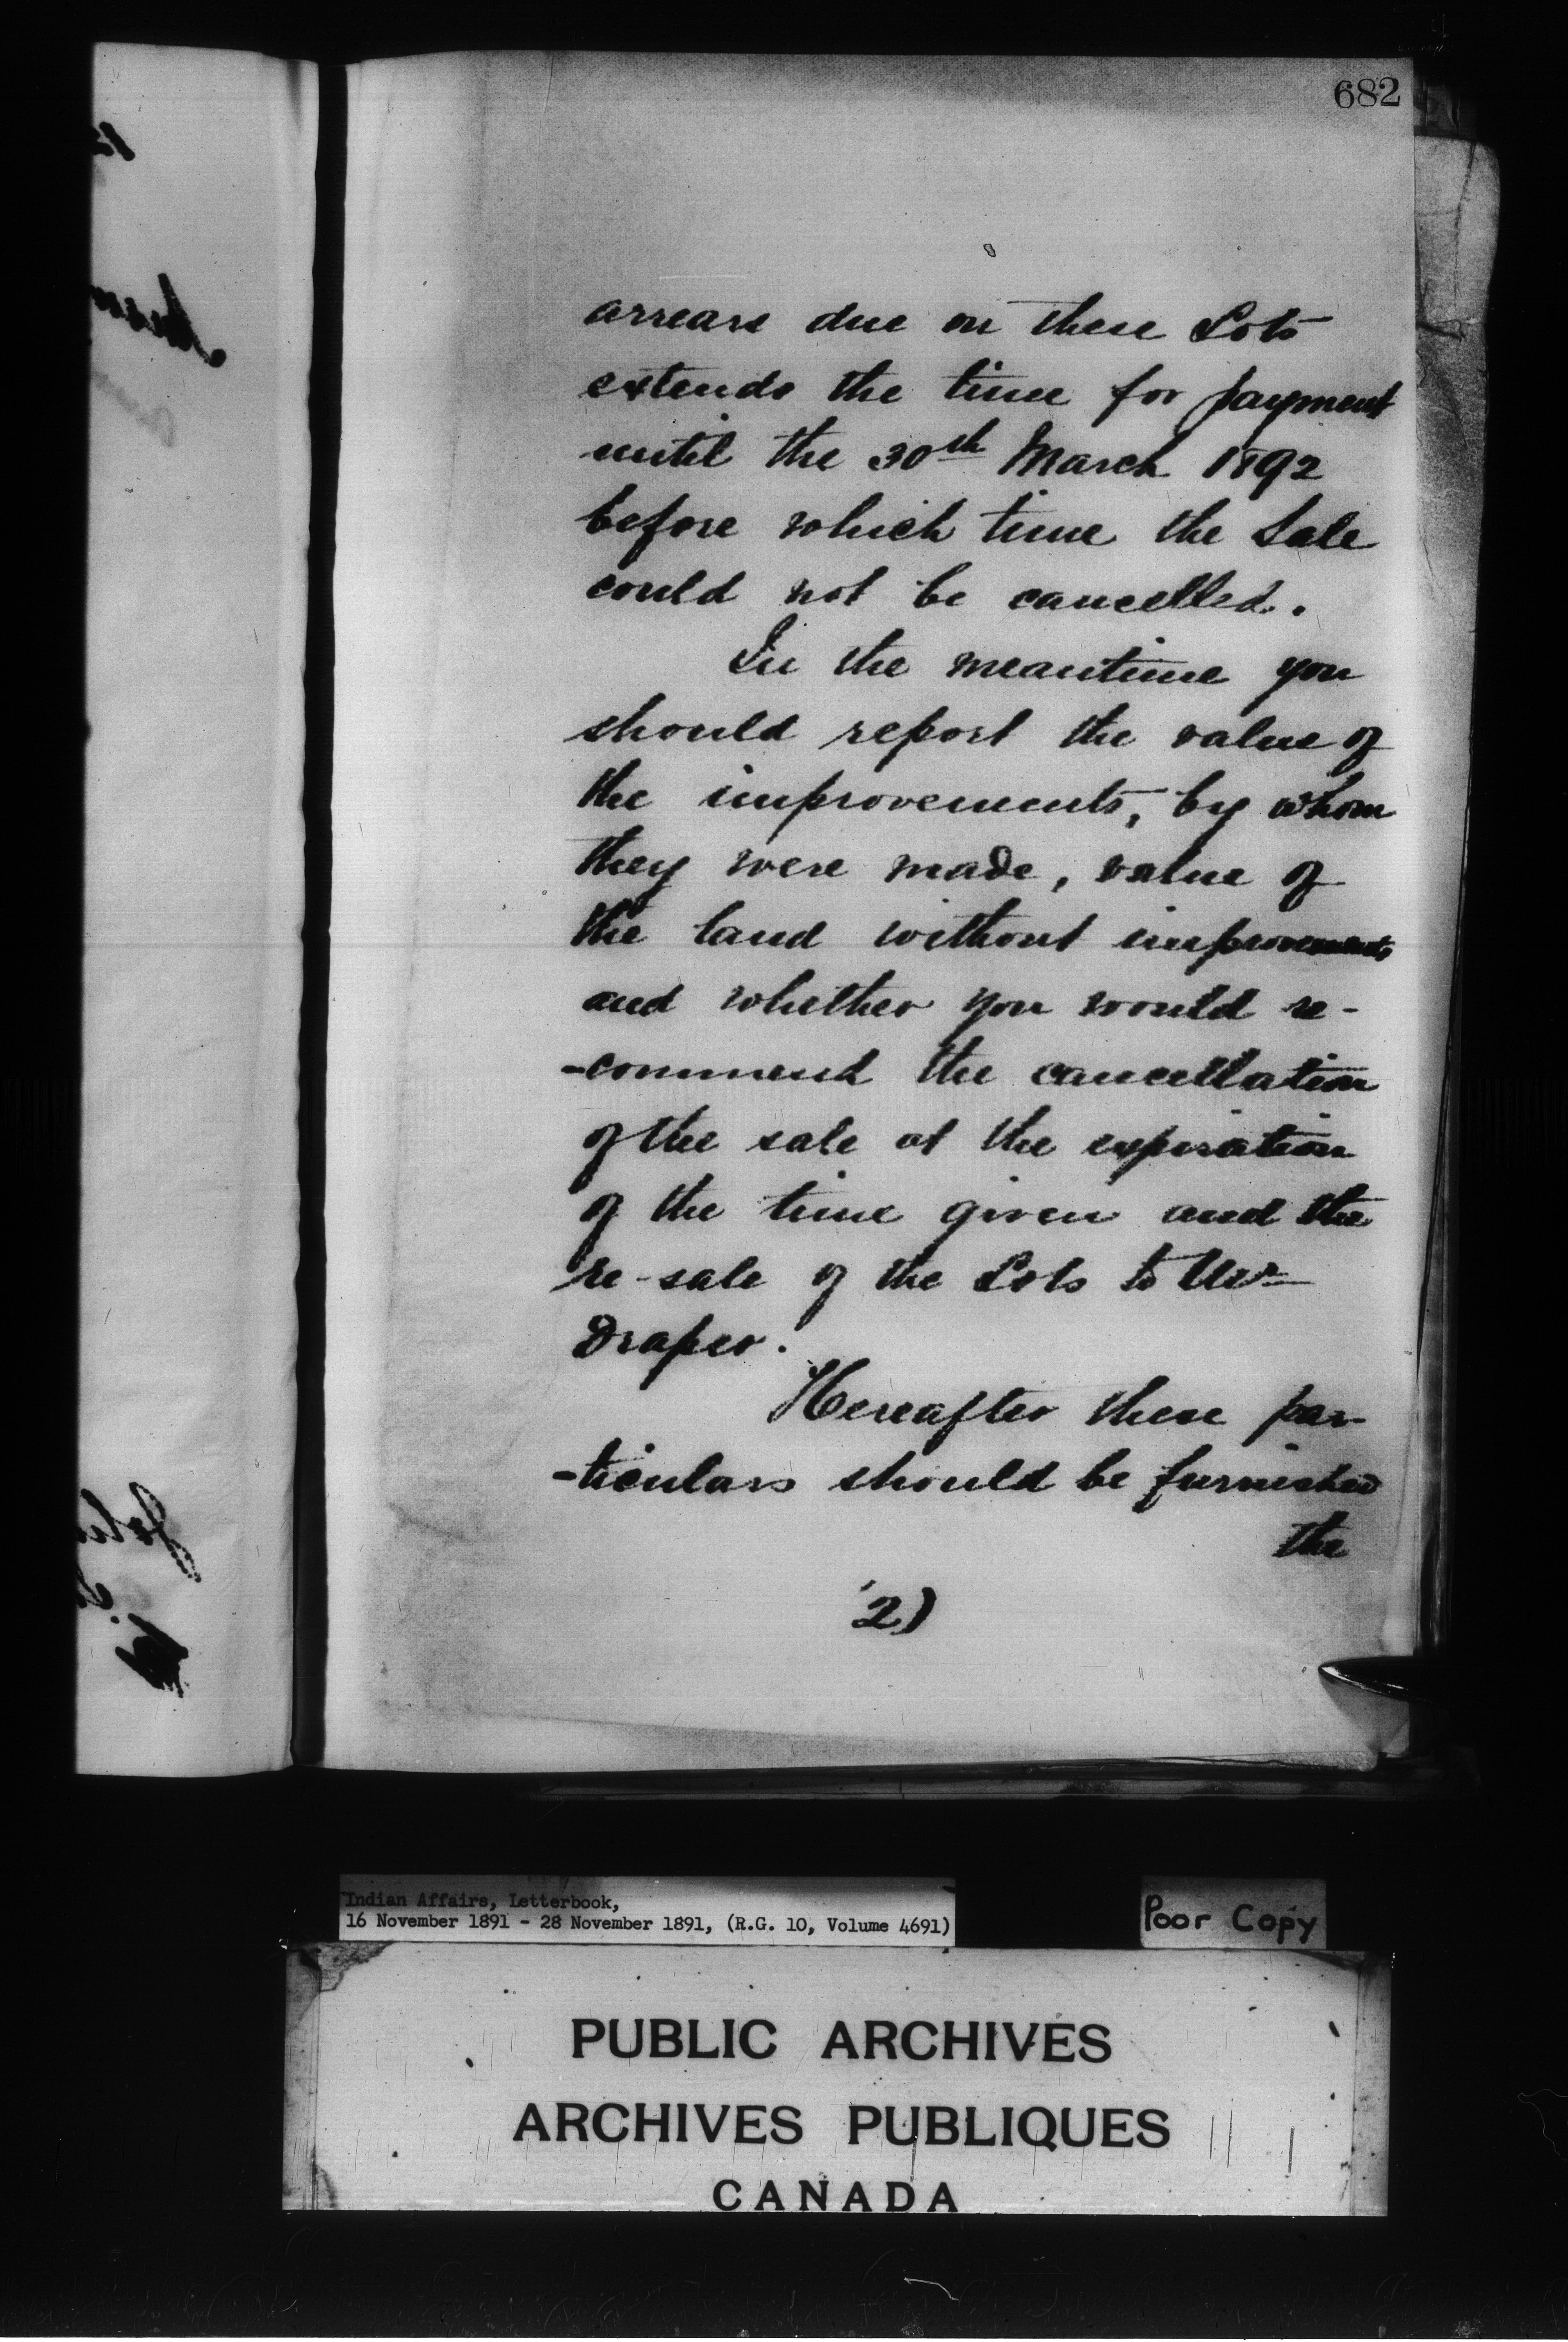 682
arrears due on these Lots
extends the time for payment
until the 30th March 1892
before which time the Sale
could not be cancelled.
In the meantime you
should report the value of
the improvements, by whom
they were made, value of
the land without improvements
and whether you would re-
-commend the cancellation
of the sale at the expiration
of the time given and the
re-sale of the Lots to Mr
Draper.
Hereafter these par-
-ticulars should be furnished
the
2)
Indian Affairs, Letterbook,
16 November 1891 - 28 November 1891, (R.G. 10, Volume 4691)
Poor Copy
PUBLIC ARCHIVES
ARCHIVES PUBLIQUES
CANADA